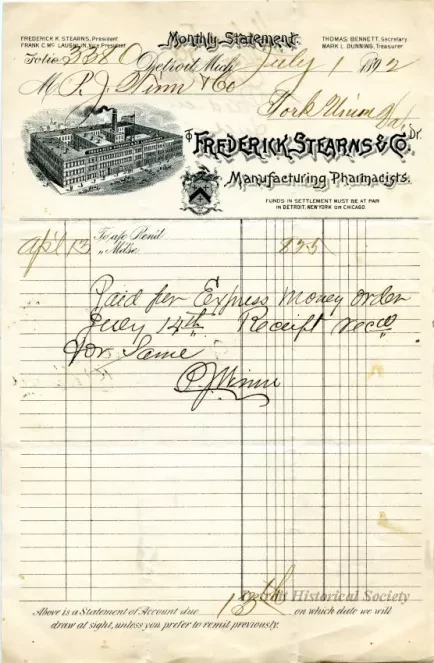 FREDERICK K. STEARNS, President
FRANK C. McLAUGHLIN, Vice President
Monthly Statement.
THOMAS BENNETT, Secretary
MARK L. DUNNING, Treasurer
Folio 3380 Detroit, Mich. July 1 1892
M P. J. Winn & Co
York
To FREDERICK STEARNS & CO. Dr.
Manufacturing Pharmacists.
FUNDS IN SETTLEMENT MUST BE AT PAR
IN DETROIT, NEW YORK OR CHICAGO.
Apl 13 To a/c Rend
" Mdse. 825
Paid for Express Money order
July 14th Receipt recd
for Same
P J Winn
Historical Society
Above is a Statement of Account due 15th on which date we will
draw at sight, unless you prefer to remit previously.